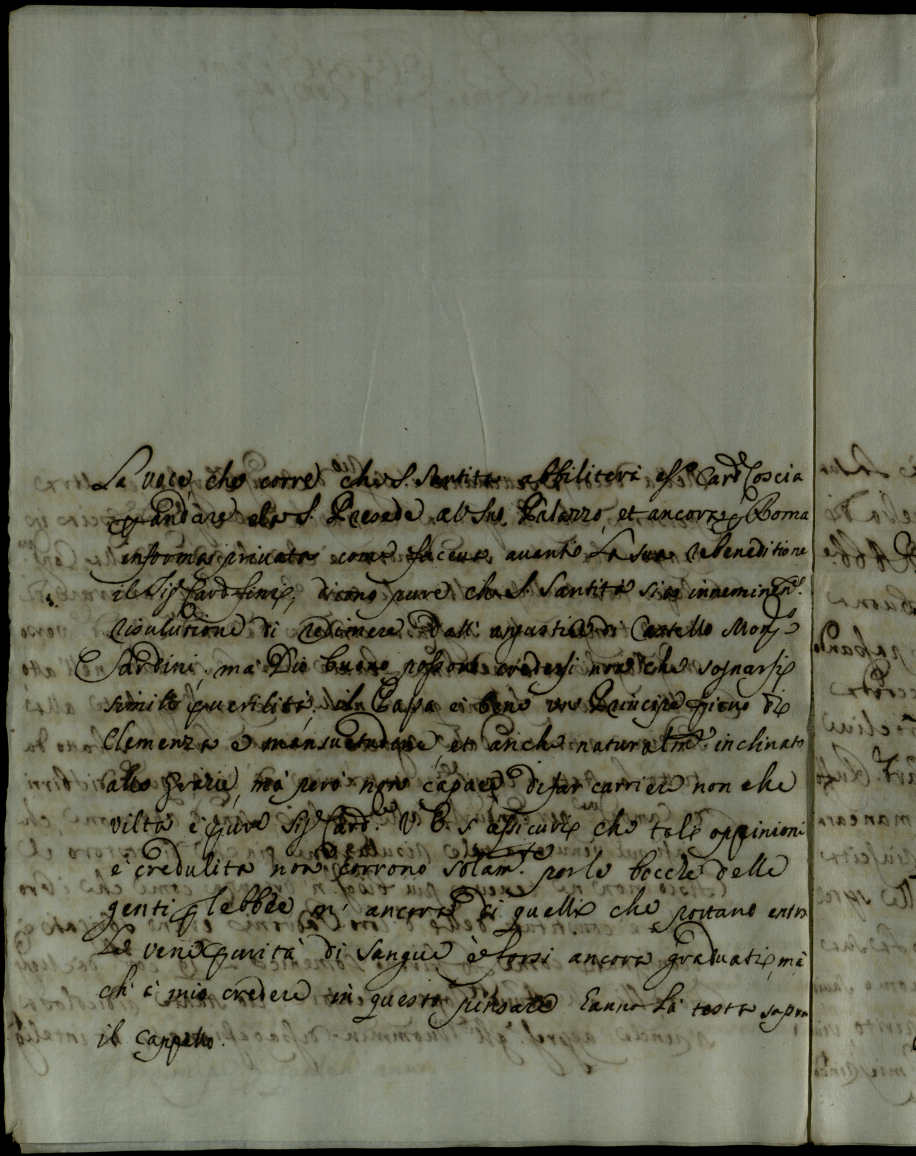 La voce, che corre che S. Santita abbiliterà esso Card. Coscia
andare da S. Presede al Suo Palazzo, et ancora p Roma
in forma privata come faceva avanti La sua rebeneditione
il Sig. Card. Fini, dicono pure che S. Santità sia inneminen.
risulutione di redimere dall' angustie di Castello Mons.
Sardini, mà Dio buono possono credersi non che sognarsi
simili puerilità, il Papa è bene un Principe pieno di
Clemenza e mansuetudine et anche naturalm. inclinato
alle grazie, mà però non capace di far carriere non che
viltà e pure Sig. Card. V. E. s' assicuri che tali oppinioni
e credulità non corrono solam. per le bocche delle
genti plebbee mà ancora di quelli che portano entro
Le vene purità di Sangue e forsi ancora graduati, mà
ch' à mio credere in questo pensare hanno La testa sopra
il cappello.